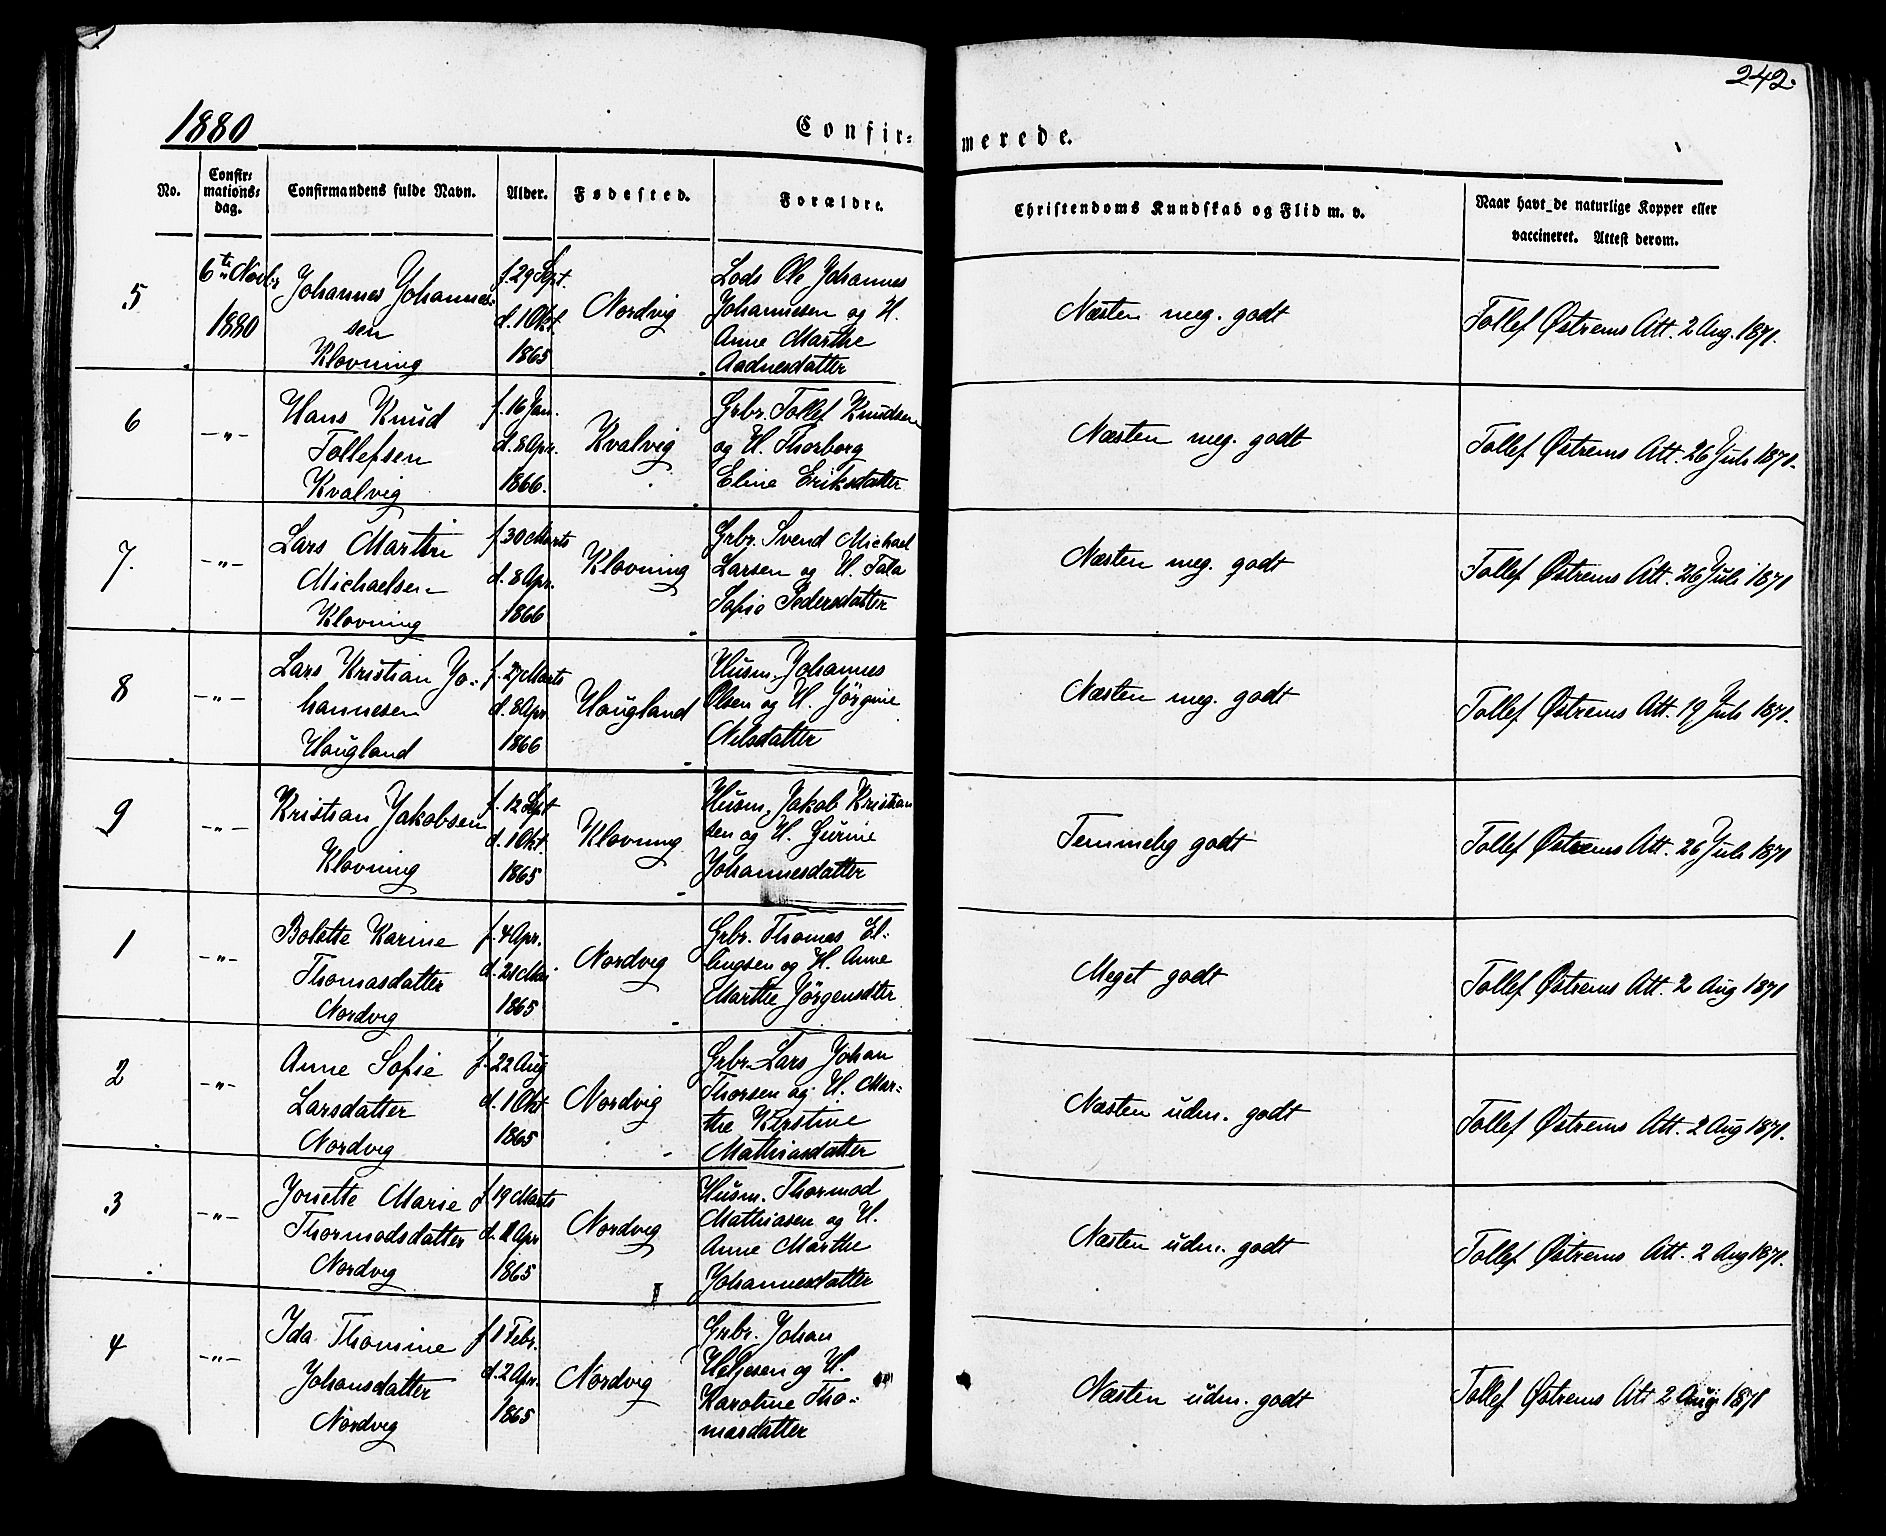 242.
1880
Confir-
merede.
No.
Confir-
mations-
dag.
Confirmandens fulde Navn.
Alder.
Fødested.
Forældre.
Christendoms Kundskab og Flid m. v.
Naar havt de naturlige Kopper eller
vaccineret. Attest derom.
5
6te Novbr
1880
Johannes Johannes-
sen
Klovning
f. 29 Sept.
d. 1 Okt.
1865
Nordvig
Lods Ole Johannes
Johannesen og H.
Anne Marthe
Aadnesdatter
Næsten meg. godt
Tollef Østrems Att. 2 Aug. 1871.
6
—"—
Hans Knud
Tollefsen
Kvalvig
f. 16 Jan.
d. 8 Apr.
1866.
Kvalvig
Grbr. Tollef Knudsen
og H. Thorborg
Eline Eriksdatter
Næsten meg. godt
Tollef Østrems Att. 26 Juli 1871.
7.
—"—
Lars Martin
Michaelsen
Klovning
f. 30 Marts
d. 8 Apr.
1866
Klovning
Grbr. Svend Michael
Larsen og H. Tala
Sofie Pedersdatter
Næsten meg. godt
Tollef Østrems Att. 26 Juli 1871
8
—"—
Lars Kristian Jo-
hannesen
Hougland
f. 27 Marts
d. 8 Apr.
1866
Hougland
Husm. Johannes
Olsen og H. Jörgine
Nilsdatter
Næsten meg. godt
Tollef Østrems Att. 19 Juli 1871.
9
—"—
Kristian Jakobsen
Klovning
f. 12 Sept
d. 1 Okt.
1865
Klovning
Husm. Jakob Kristian
sen og H. Gurine
Johannesdatter
Temmelig godt
Tollef Østrems Att. 26 Juli 1871
1
—"—
Bolette Karine
Thomasdatter
Nordvig
f. 4 Apr.
d. 21 Mai
1865
Nordvig
Grbr. Thomas El-
lingsen og H. Anne
Marthe Jörgensdtr
Meget godt
Tollef Østrems Att. 2 Aug 1871
2
—"—
Anne Sofie
Larsdatter
Nordvig
f. 22 Aug
d. 1 Okt
1865
Nordvig
Grbr. Lars Johan
Thorsen og H. Mar-
the Kirstine
Mathiasdatter
Næsten udm. godt
Tollef Østrems Att. 2 Aug 1871.
3
—"—
Jonette Marie
Thormodsdatter
Nordvig
f. 19 Marts
d. Apr
1865
Nordvig
Husm. Thormod
Mathiasen og H.
Anne Marthe
Johannesdatter
Næsten udm. godt
Tollef Østrems Att. 2 Aug 1871.
4
—"—
Ida Thomine
Johansdatter
Nordvig
f. 1 Febr.
d. 2 Apr.
1865
Nordvig
Grbr. Johan
Helgesen og H.
Karoline Tho-
masdatter
Næsten udm. godt
Tollef Østrems Att 2 Aug 1871